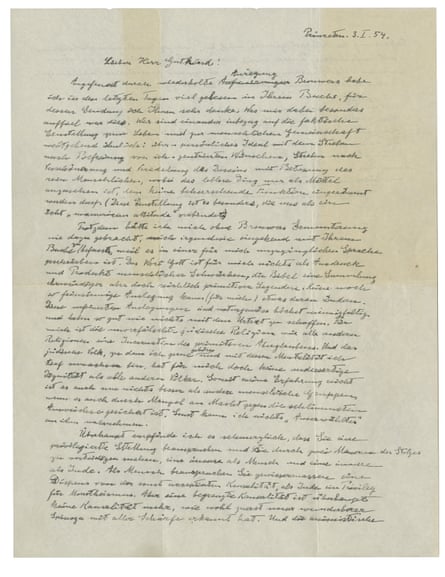 Princeton. 3. I. 54.
Lieber Herr Gutkind!
Anregung
Angefeuert durch wiederholte Brouwers habe
ich in den letzten Tagen viel gelesen in Ihrem Buche, für
dessen Sendung ich Ihnen sehr danke. Was mir dabei besonders
auffiel war dies. Wir sind einander inbezug auf die faktische
Einstellung zum Leben und zur menschlichen Gemeinschaft
weitgehend ähnlich: persönliches Ideal mit dem Streben
nach Befreiung von ich-zentrierten Wünschen, Streben nach
Verschönerung und Veredelung des Daseins mit Betonung des
rein Menschlichen, wobei das leblose Ding nur als Mittel
anzusehen ist, dem keine beherrschende Funktion eingeräumt
werden darf. (Diese Einstellung ist es besonders, die uns als ein
echt "unamerican attitude" verbindet)
Trotzdem hätte ich mich ohne Brouwers Ermunterung
nie dazu gebracht, mich irgendwie eingehend mit Ihrem
Buche zu befassen, weil es in einer für mich unzugänglichen Sprache
geschrieben ist. Das Wort Gott ist für mich nichts als Ausdruck
und Produkt menschlicher Schwächen, die Bibel eine Sammlung
ehrwürdiger aber doch reichlich primitiver Legenden. Keine noch
so feinsinnige Auslegung kann (für mich) etwas daran ändern.
Diese verfeinerten Auslegungen sind naturgemäss höchst mannigfaltig
und haben so gut wie nichts mit dem Urtext zu schaffen. Für
mich ist die unverfälschte jüdische Religion wie alle anderen
Religionen eine Incarnation des primitiven Aberglaubens. Und das
jüdische Volk, zu dem ich gerne gehöre und mit dessen Mentalität ich
tief verwachsen bin, hat für mich doch keine andersartige
Dignität als alle anderen Völker. Soweit meine Erfahrung reicht
ist es auch um nichts besser als andere menschliche Gruppen
wenn es auch durch Mangel an Macht gegen die schlimmsten
Auswüchse gesichert ist. Sonst kann ich nichts "Auserwähltes"
an ihm wahrnehmen.
Überhaupt empfinde ich es schmerzlich, dass Sie eine
privilegierte Stellung beanspruchen und sie durch zwei Mauern des Stolzes
zu verteidigen suchen, eine äussere als Mensch und eine innere
als Jude. Als Mensch beanspruchen Sie gewissermassen einen
Dispens von der sonst accept­ierten Kausalität, als Jude ein Privileg
für Monotheismus. Aber eine begrenzte Kausalität ist überhaupt
keine Kausalität mehr, wie wohl zuerst unser wunderbarer
Spinoza mit aller Schärfe erkannt hat. Und die animistische